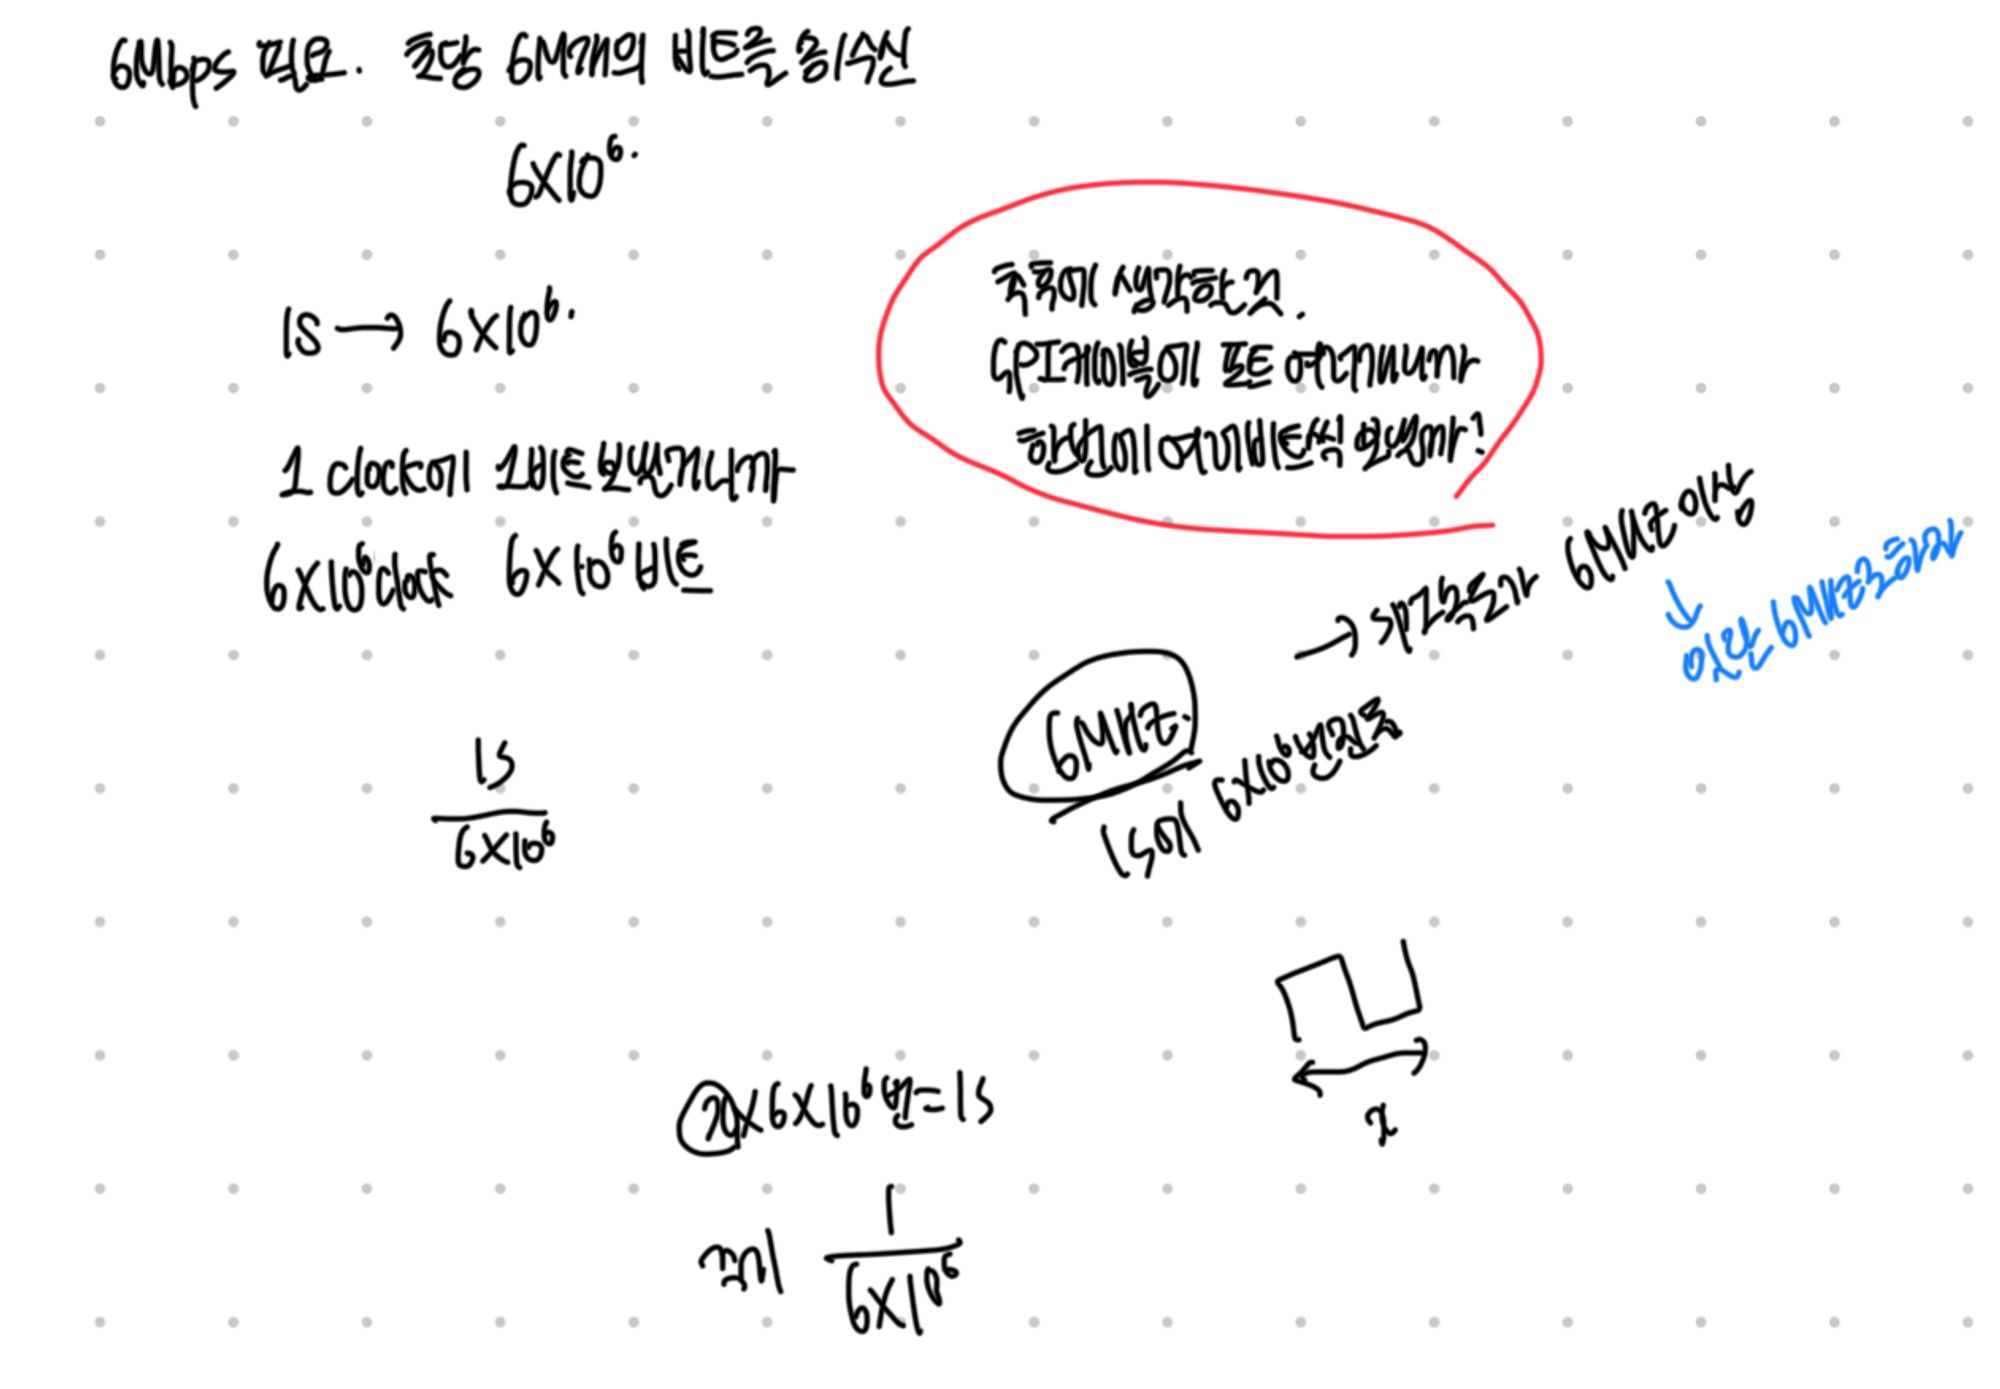 6Mbps 필요. 초당 6M개의 비트를 송/수신
6X10⁶.
1s → 6X10⁶.
1 clock에 1비트 보낼거니까
6X10⁶clock 6X10⁶비트
1s
6X10⁶
추후에 생각한 것.
SPI케이블에 포트 여러개니까
한번에 여러비트씩 보낼까?
→ SPI속도가 6MHz 이상
↓
일단 6MHz로하자
6MHz.
1s에 6X10⁶번진동
x
X6X10⁶번=1s
1
6X10⁶